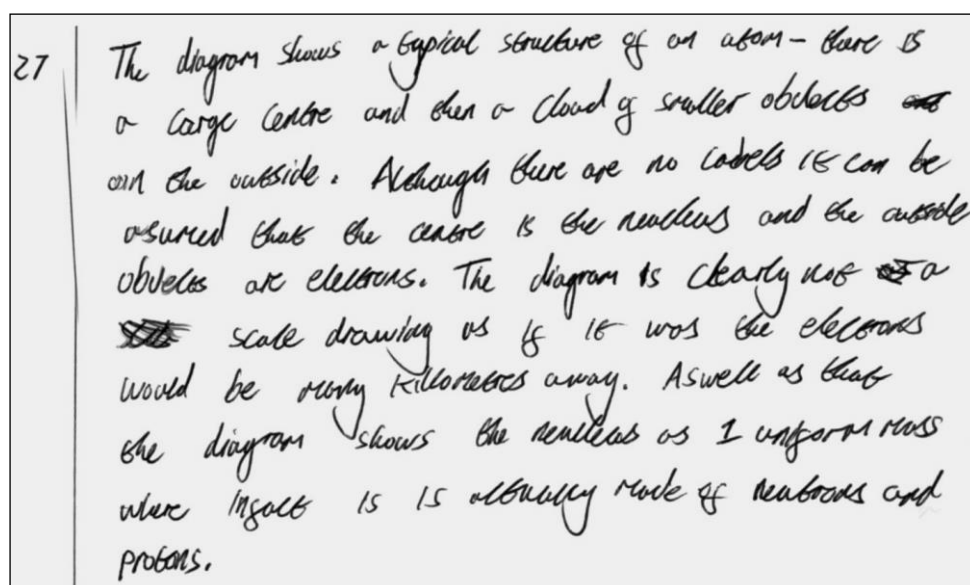 27 The diagram shows a typical structure of an atom – there is
a large centre and then a cloud of smaller obdects
on the outside. Although there are no labels it can be
asumed that the centre is the neucleus and the outside
obdects are electrons. The diagram is clearly not a
scale drawing as if it was the electrons
would be many killometres away. Aswell as that
the diagram shows the neucleus as 1 uniform mass
where infact is is actually made of neutrons and
protons.